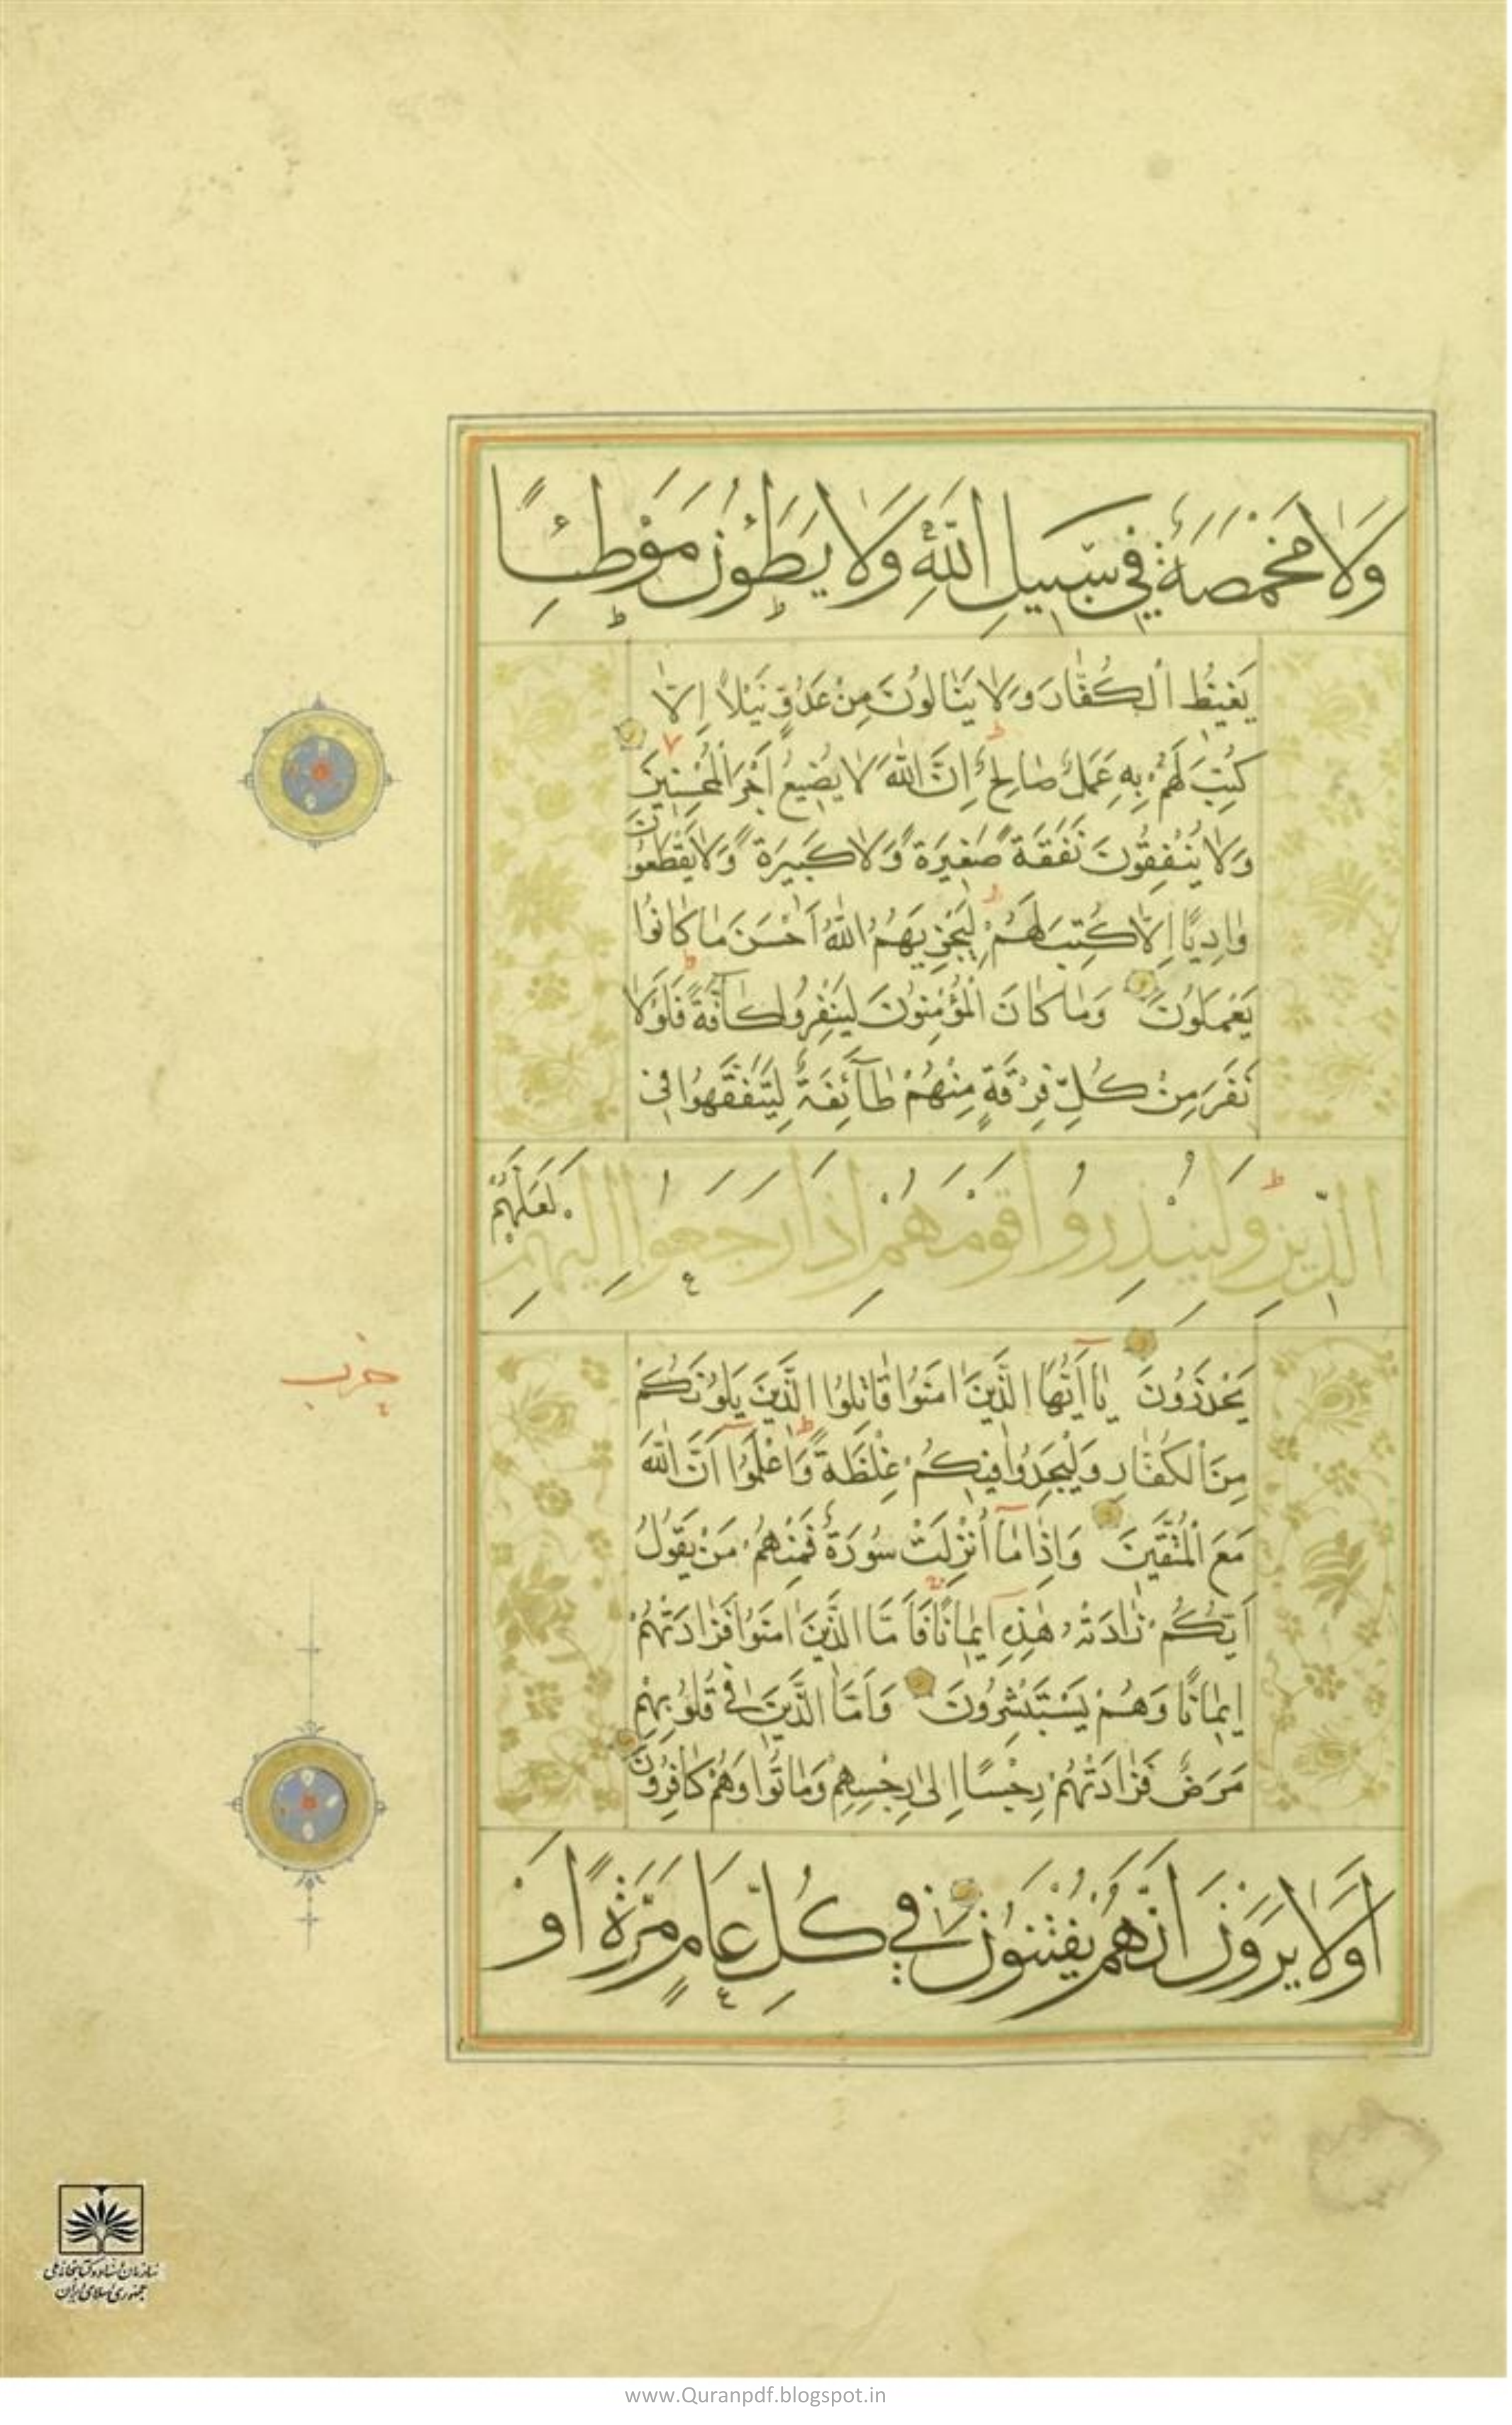 وَلَا مَخْمَصَةٌ فِي سَبِيلِ اللَّهِ وَلَا يَطَؤُنَ مَوْطِئًا
يَغِيظُ الْكُفَّارَ وَلَا يَنَالُونَ مِنْ عَدُوٍّ نَيْلًا إِلَّا
كُتِبَ لَهُمْ بِهِ عَمَلٌ صَالِحٌ إِنَّ اللَّهَ لَا يُضِيعُ أَجْرَ الْمُحْسِنِينَ
وَلَا يُنْفِقُونَ نَفَقَةً صَغِيرَةً وَلَا كَبِيرَةً وَلَا يَقْطَعُونَ
وَادِيًا إِلَّا كُتِبَ لَهُمْ لِيَجْزِيَهُمُ اللَّهُ أَحْسَنَ مَا كَانُوا
يَعْمَلُونَ وَمَا كَانَ الْمُؤْمِنُونَ لِيَنْفِرُوا كَآفَّةً فَلَوْلَا
نَفَرَ مِنْ كُلِّ فِرْقَةٍ مِنْهُمْ طَآئِفَةٌ لِيَتَفَقَّهُوا فِي
الدِّينِ وَلِيُنْذِرُوا قَوْمَهُمْ إِذَا رَجَعُوا إِلَيْهِمْ لَعَلَّهُمْ
يَحْذَرُونَ يَا أَيُّهَا الَّذِينَ امَنُوا قَاتِلُوا الَّذِينَ يَلُونَكُمْ
حزب
مِنَ الْكُفَّارِ وَلْيَجِدُوا فِيكُمْ غِلْظَةً وَاعْلَمُوا أَنَّ اللَّهَ
مَعَ الْمُتَّقِينَ وَإِذَا مَا أُنْزِلَتْ سُورَةٌ فَمِنْهُمْ مَنْ يَقُولُ
أَيُّكُمْ زَادَتْهُ هَذِهِ إِيمَانًا فَأَمَّا الَّذِينَ امَنُوا فَزَادَتْهُمْ
إِيمَانًا وَهُمْ يَسْتَبْشِرُونَ وَأَمَّا الَّذِينَ فِي قُلُوبِهِمْ
مَرَضٌ فَزَادَتْهُمْ رِجْسًا إِلَى رِجْسِهِمْ وَمَاتُوا وَهُمْ كَافِرُونَ
أَوَلَا يَرَوْنَ أَنَّهُمْ يُفْتَنُونَ فِي كُلِّ عَامٍ مَرَّةً أَوْ
سازمان اسناد و کتابخانه ملی
جمهوری اسلامی ایران
www.Quranpdf.blogspot.in